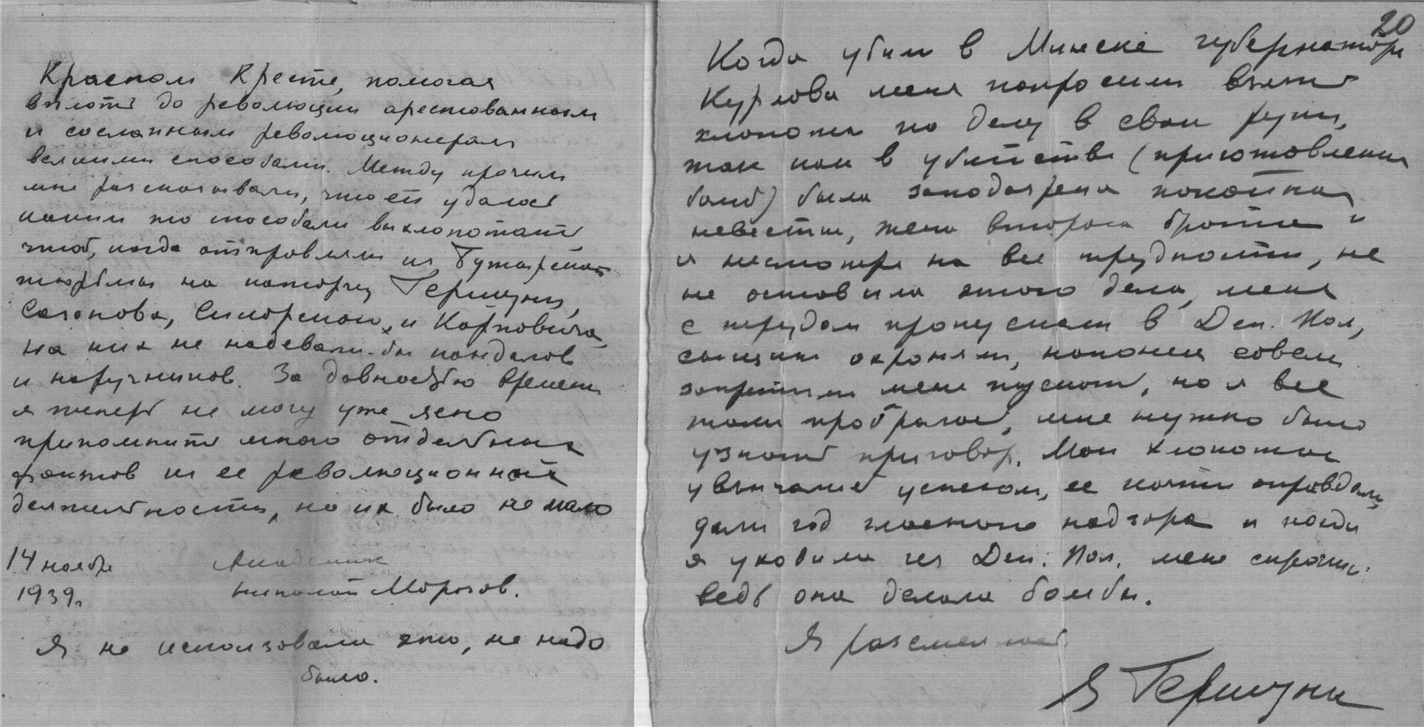 Красном Кресте, помогая
вплоть до революции арестованным
и сосланным революционерам
всякими способами. Между прочим
мне рассказывали, что ей удалось
какими то способами выхлопотать
чтоб, когда отправляли из Бутырской
тюрьмы на каторгу Гершуни,
Сазонова, Сикорского, и Карповича,
на них не надевали бы кандалов
и наручников. За давностью времени
я теперь не могу уже ясно
припомнить много отдельных
фактов из ее революционной
деятельности, но их было не мало
14 ноября
1939г.
Академик
Николай Морозов.
Я не использовала это, не надо
было.
20
Когда убили в Минске губернатора
Курлова меня попросили взять
хлопоты по делу в свои руки,
так как в убийстве (приготовлении
бомб) была заподозрена покойная
невестка, жена второго брата
и несмотря на все трудности, не
не оставила этого дела, меня
с трудом пропускали в Деп. Пол,
сыщики охраняли, наконец совсем
запретили меня пускать, но я все
таки пробралась, мне нужно было
узнать приговор. Мои хлопоты
увенчались успехом, ее почти оправдали,
дали год гласного надзора и когда
я уходила из Деп. Пол. меня спросили:
ведь она делала бомбы.
Я рассмеялась
В Гершуни